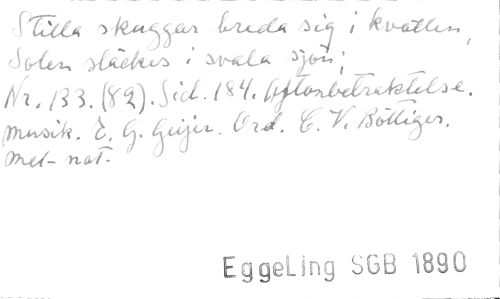 Stilla skuggar breda sig i kvällen,
Solen släckes i svala sjön;
Nr. 133. (82). Sid. 184. Aftonbetraktelse.
musik. E. G. Geijer. Ord. C. V. Böttiger.
met- not-
EggeLing SGB 1890